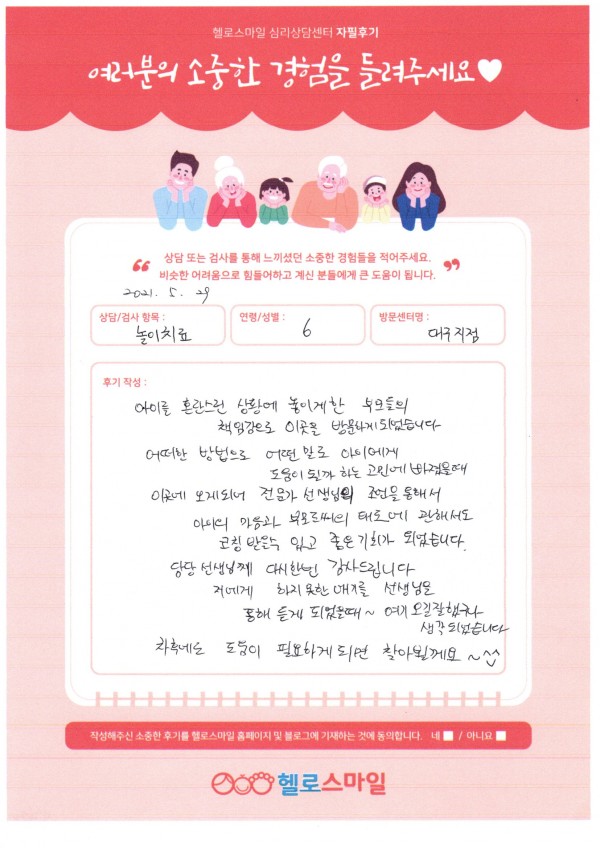 헬로스마일 심리상담센터 자필후기
여러분의 소중한 경험을 들려주세요♥
상담 또는 검사를 통해 느끼셨던 소중한 경험들을 적어주세요.
비슷한 어려움으로 힘들어하고 계신 분들에게 큰 도움이 됩니다.
2021. 5. 29
상담/검사 항목 : 놀이치료
연령/성별 : 6
방문센터명 : 대구지점
후기 작성 :
아이를 혼란스런 상황에 놓이게한 부모들의
책임감으로 이곳을 방문하게 되었습니다
어떠한 방법으로 어떤 말로 아이에게
도움이 될까 하는 고민에 빠졌을때
이곳에 오게되어 전문가 선생님의 조언을 통해서
아이의 마음과 부모로써의 태도에 관해서도
코칭 받을수 있고 좋은 기회가 되었습니다.
담당 선생님께 다시한번 감사드립니다
저에게 하지 못한 얘기를 선생님을
통해 듣게 되었을때~ 여기 오길잘했구나
생각 되었습니다
차후에도 도움이 필요하게 되면 찾아뵐께요 ~^^
작성해주신 소중한 후기를 헬로스마일 홈페이지 및 블로그에 기재하는 것에 동의합니다. 네 ■ / 아니요 ■
헬로스마일